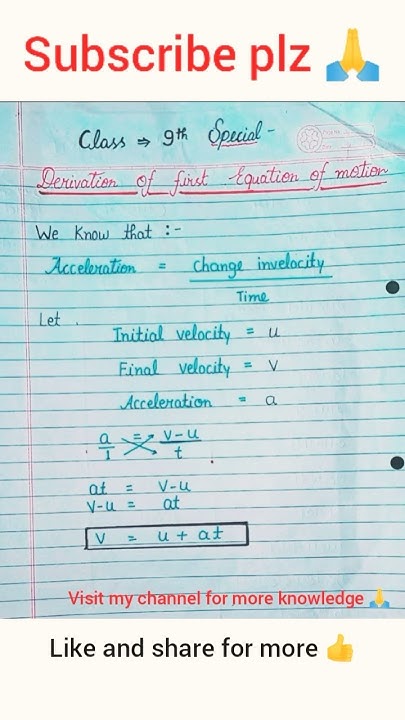 Subscribe plz 🙏
Class ⇒ 9th Special -
Derivation of first Equation of motion
We Know that :-
Acceleration = Change invelocity
Time
Let
Initial velocity = u
Final velocity = v
Acceleration = a
a = v-u
1 t
at = v-u
v-u = at
v = u + at
Visit my channel for more knowledge 🙏
Like and share for more 👍